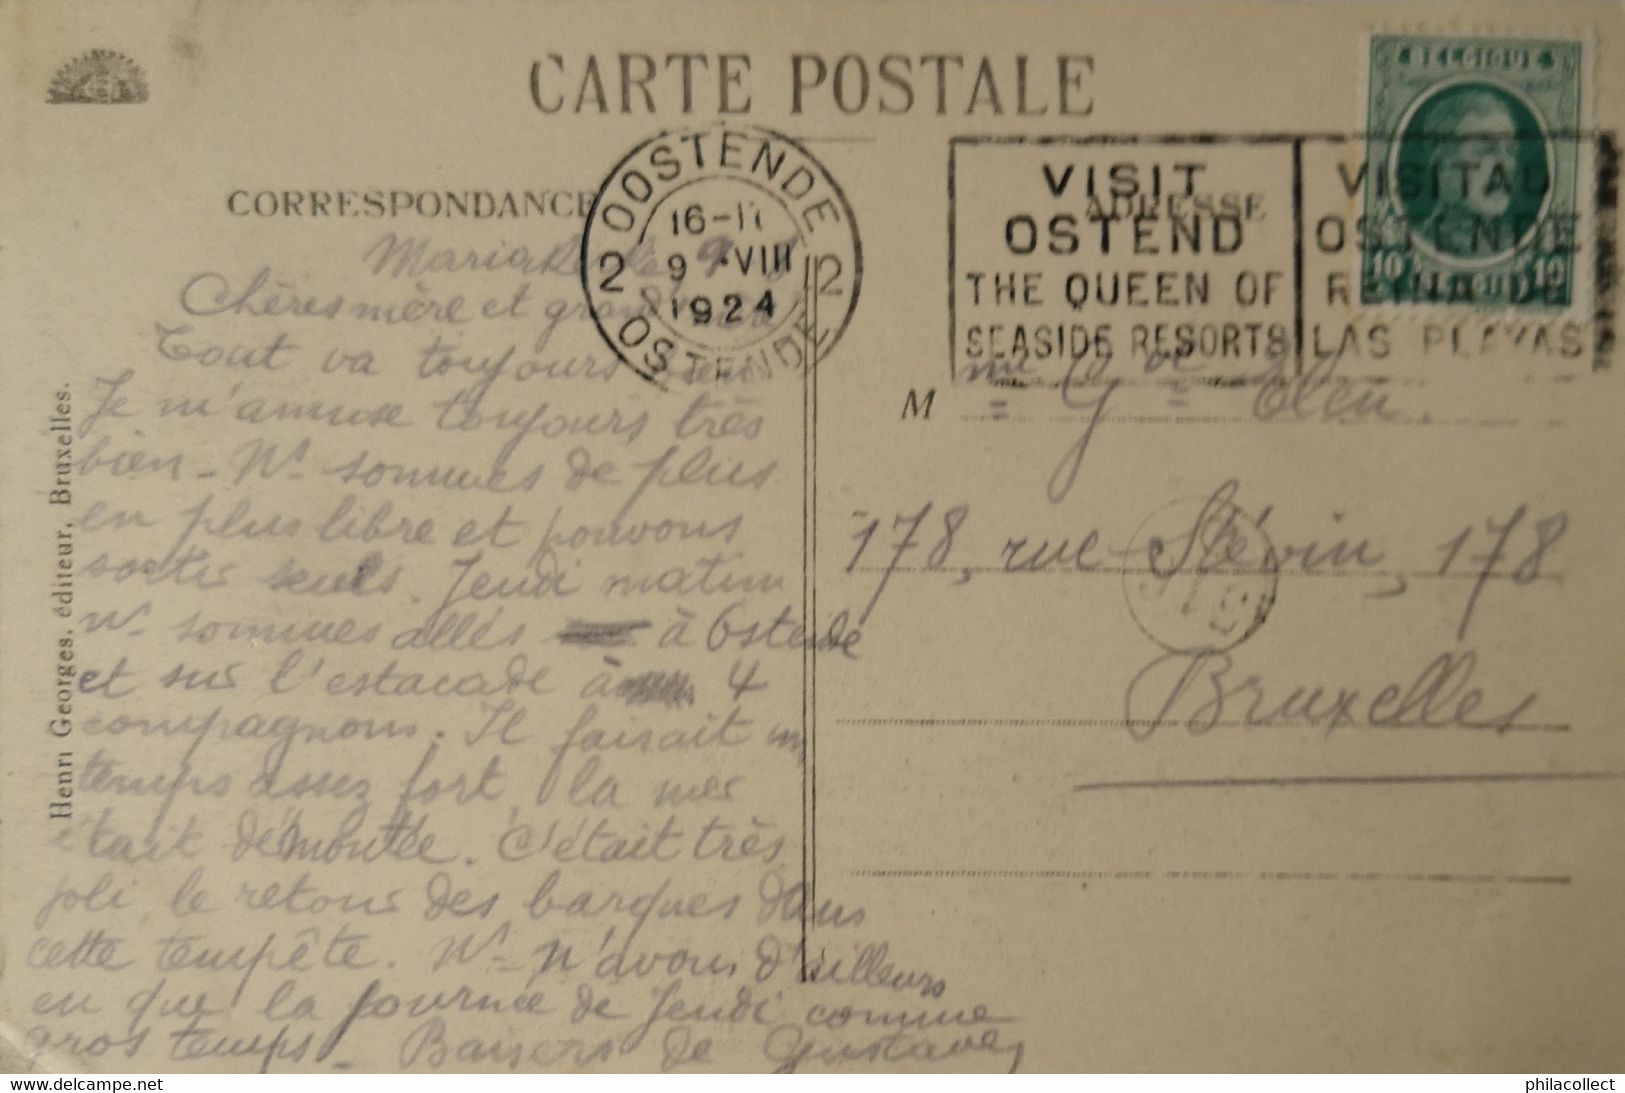 CARTE POSTALE
CORRESPONDANCE
ADRESSE
BELGIQUE
10 10
OOSTENDE
2 2
16-17
9 -VIII
1924
OSTENDE
VISIT
OSTEND
THE QUEEN OF
SEASIDE RESORTS
VISITAD
OSTENDE
REINA DE
LAS PLAYAS
Chères mère et grand'mère
Tout va toujours bien
Je m'amuse toujours très
bien - Ns sommes de plus
en plus libre et pouvons
sortir seuls. Jeudi matin
ns sommes allés à Ostende
et sur l'estacade à 4
compagnons. Il faisait un
temps assez fort, la mer
était démontée. C'était très
joli, le retour des barques dans
cette tempête. Ns n'avons d'ailleurs
eu que la journée de jeudi comme
gros temps - Baisers de Gustave
M me G ve Eleu.
178, rue Stévin, 178
Bruxelles
Henri Georges, éditeur, Bruxelles.
philacollect